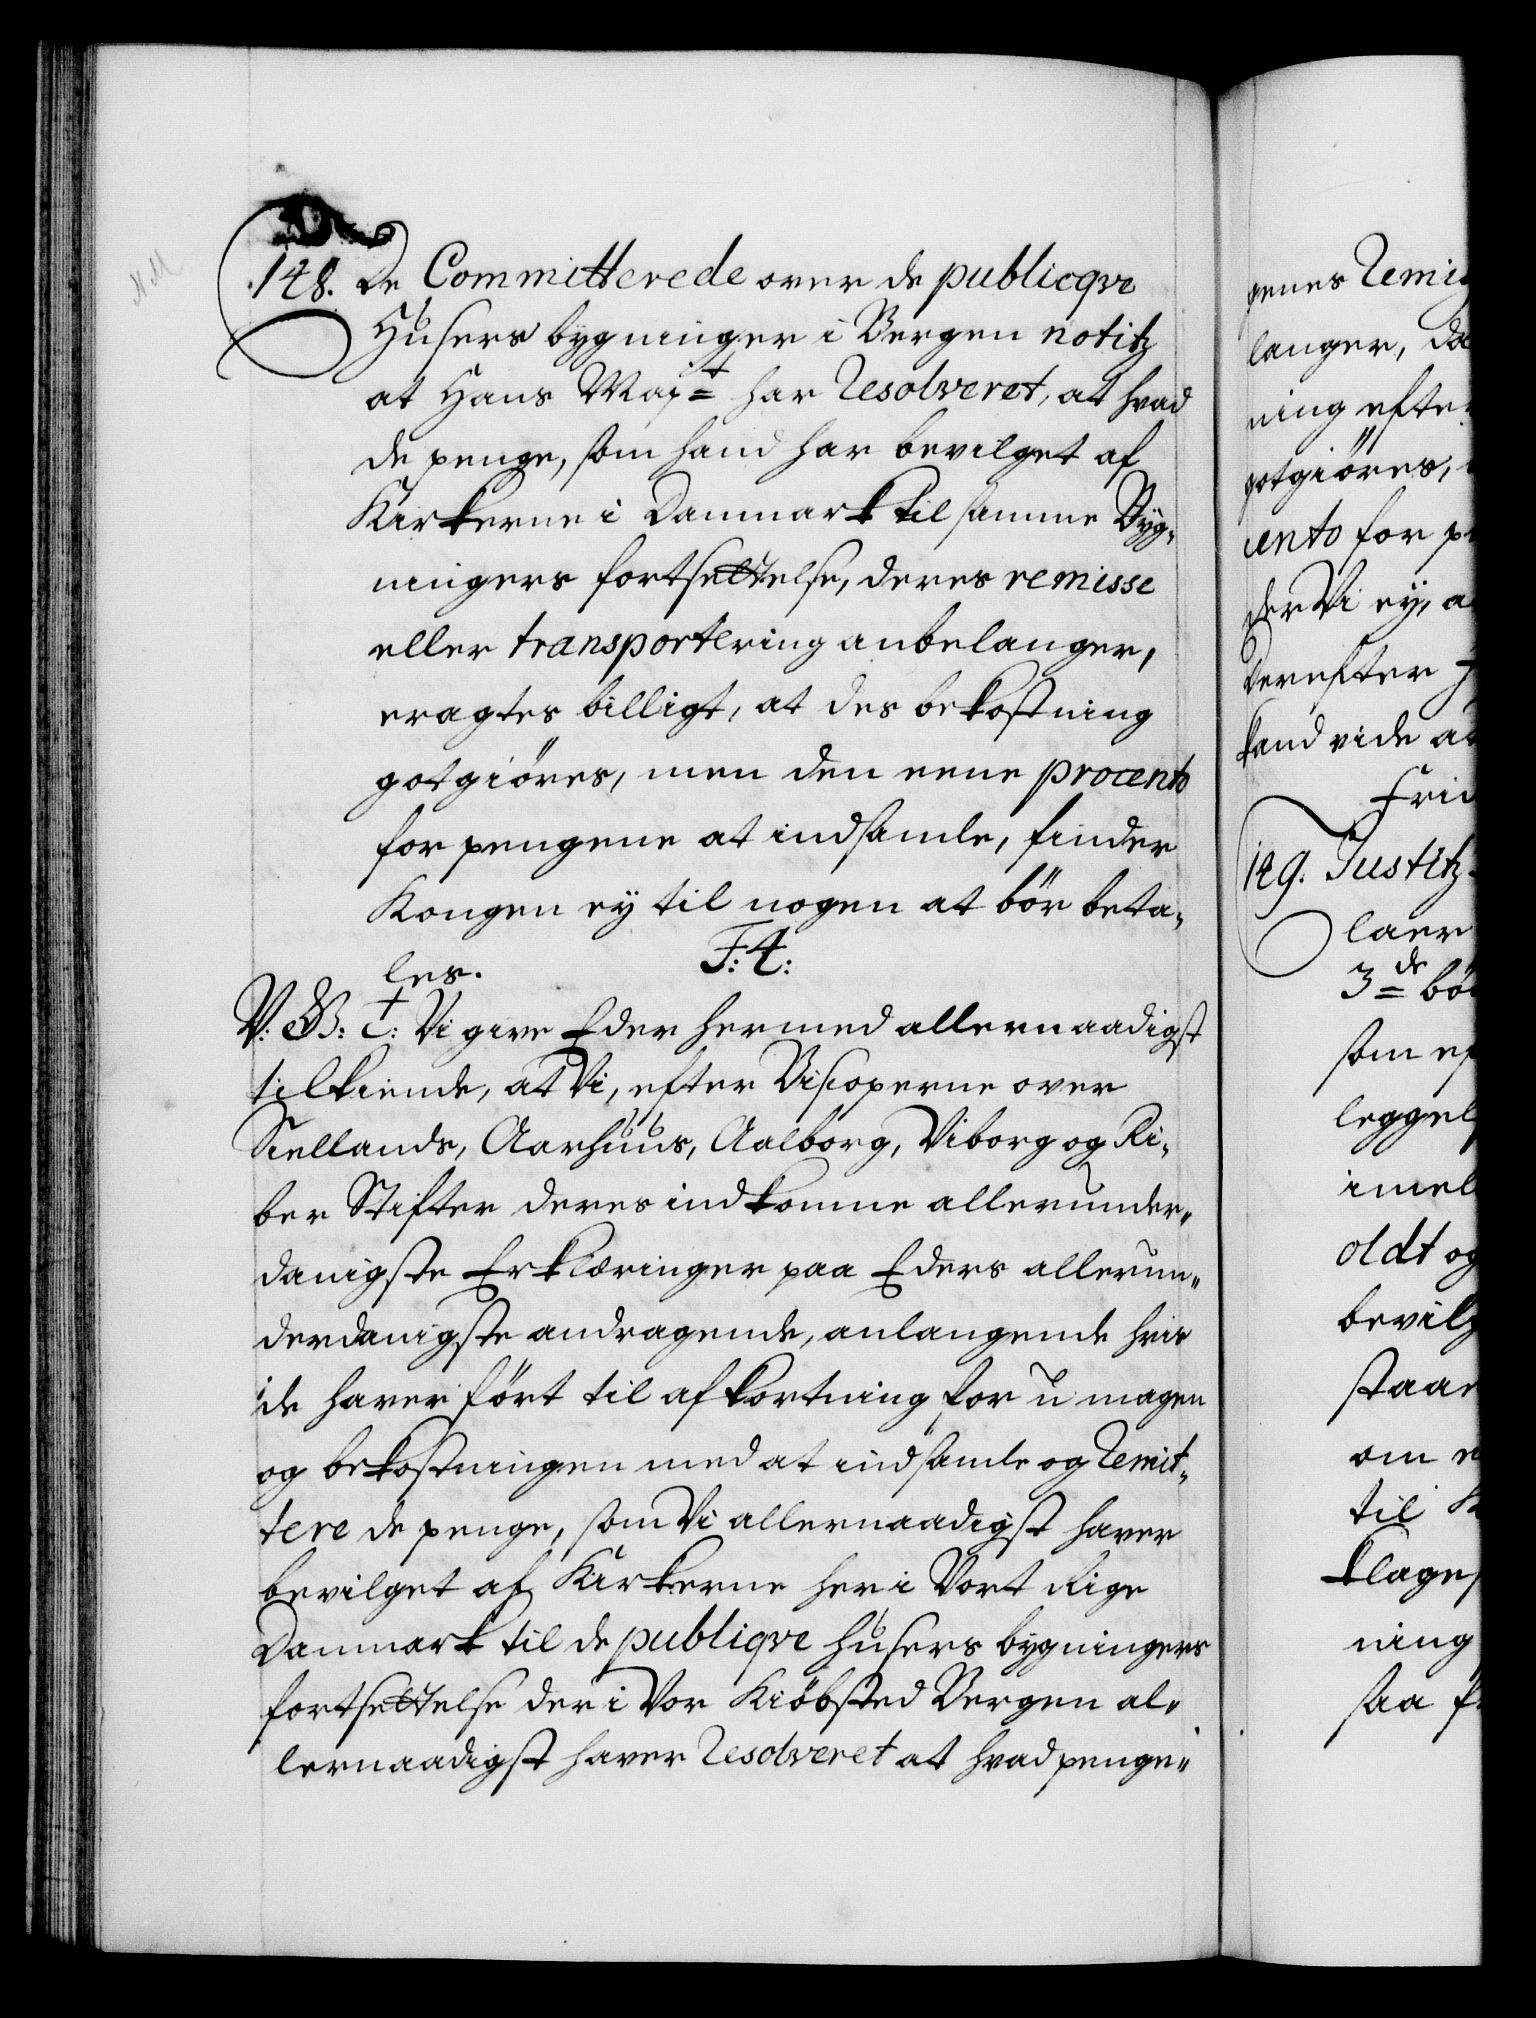 148. De Committerede over de publicqve
Husers bygninger i Bergen notitz
at Hans Maj:t har Resolveret, at hvad
de penge, som hand har bevilget af
Kirkerne i Danmark til samme Byg-
ningers fortsettelse, deres remisse
eller transportering anbelanger,
eragtes billigt, at des bekostning
gotgiöres, men den eene procento
for pengene at indsamle, finder
Kongen ey til nogen at bör beta-
les. F: 4:
V: G: T: Vi give Eder hermed allernaadigst
tilkiende, at Vi, efter Biscoperne over
Siellands, Aarhuus, Aalborg, Viborg og Ri-
ber Stifter deres indkomne allerunder-
danigste Erklæringer paa Eders allerun-
derdanigste andragende, anlangende hvis
de haver fört til afkortning for u magen
og bekostningen med at indsamle og Remit-
tere de penge, som Vi allernaadigst haver
bevilget af Kirkerne her i Vort Rige
Danmark til de publiqve Husers bygningers
fortsettelse der i Vor Kiöbsted Bergen al-
lernaadigst haver Resolveret at hvad penge-
genes Remis
langer, da
ning efte
gotgiöres,
cento for p
der Vi ey, a
Derefter
kand vide at
Frid
149. Justitz
laer
3de bö
som ef
leggels
imel
oldt og
bevilg
staar
om
til K
klages
ning
saa f